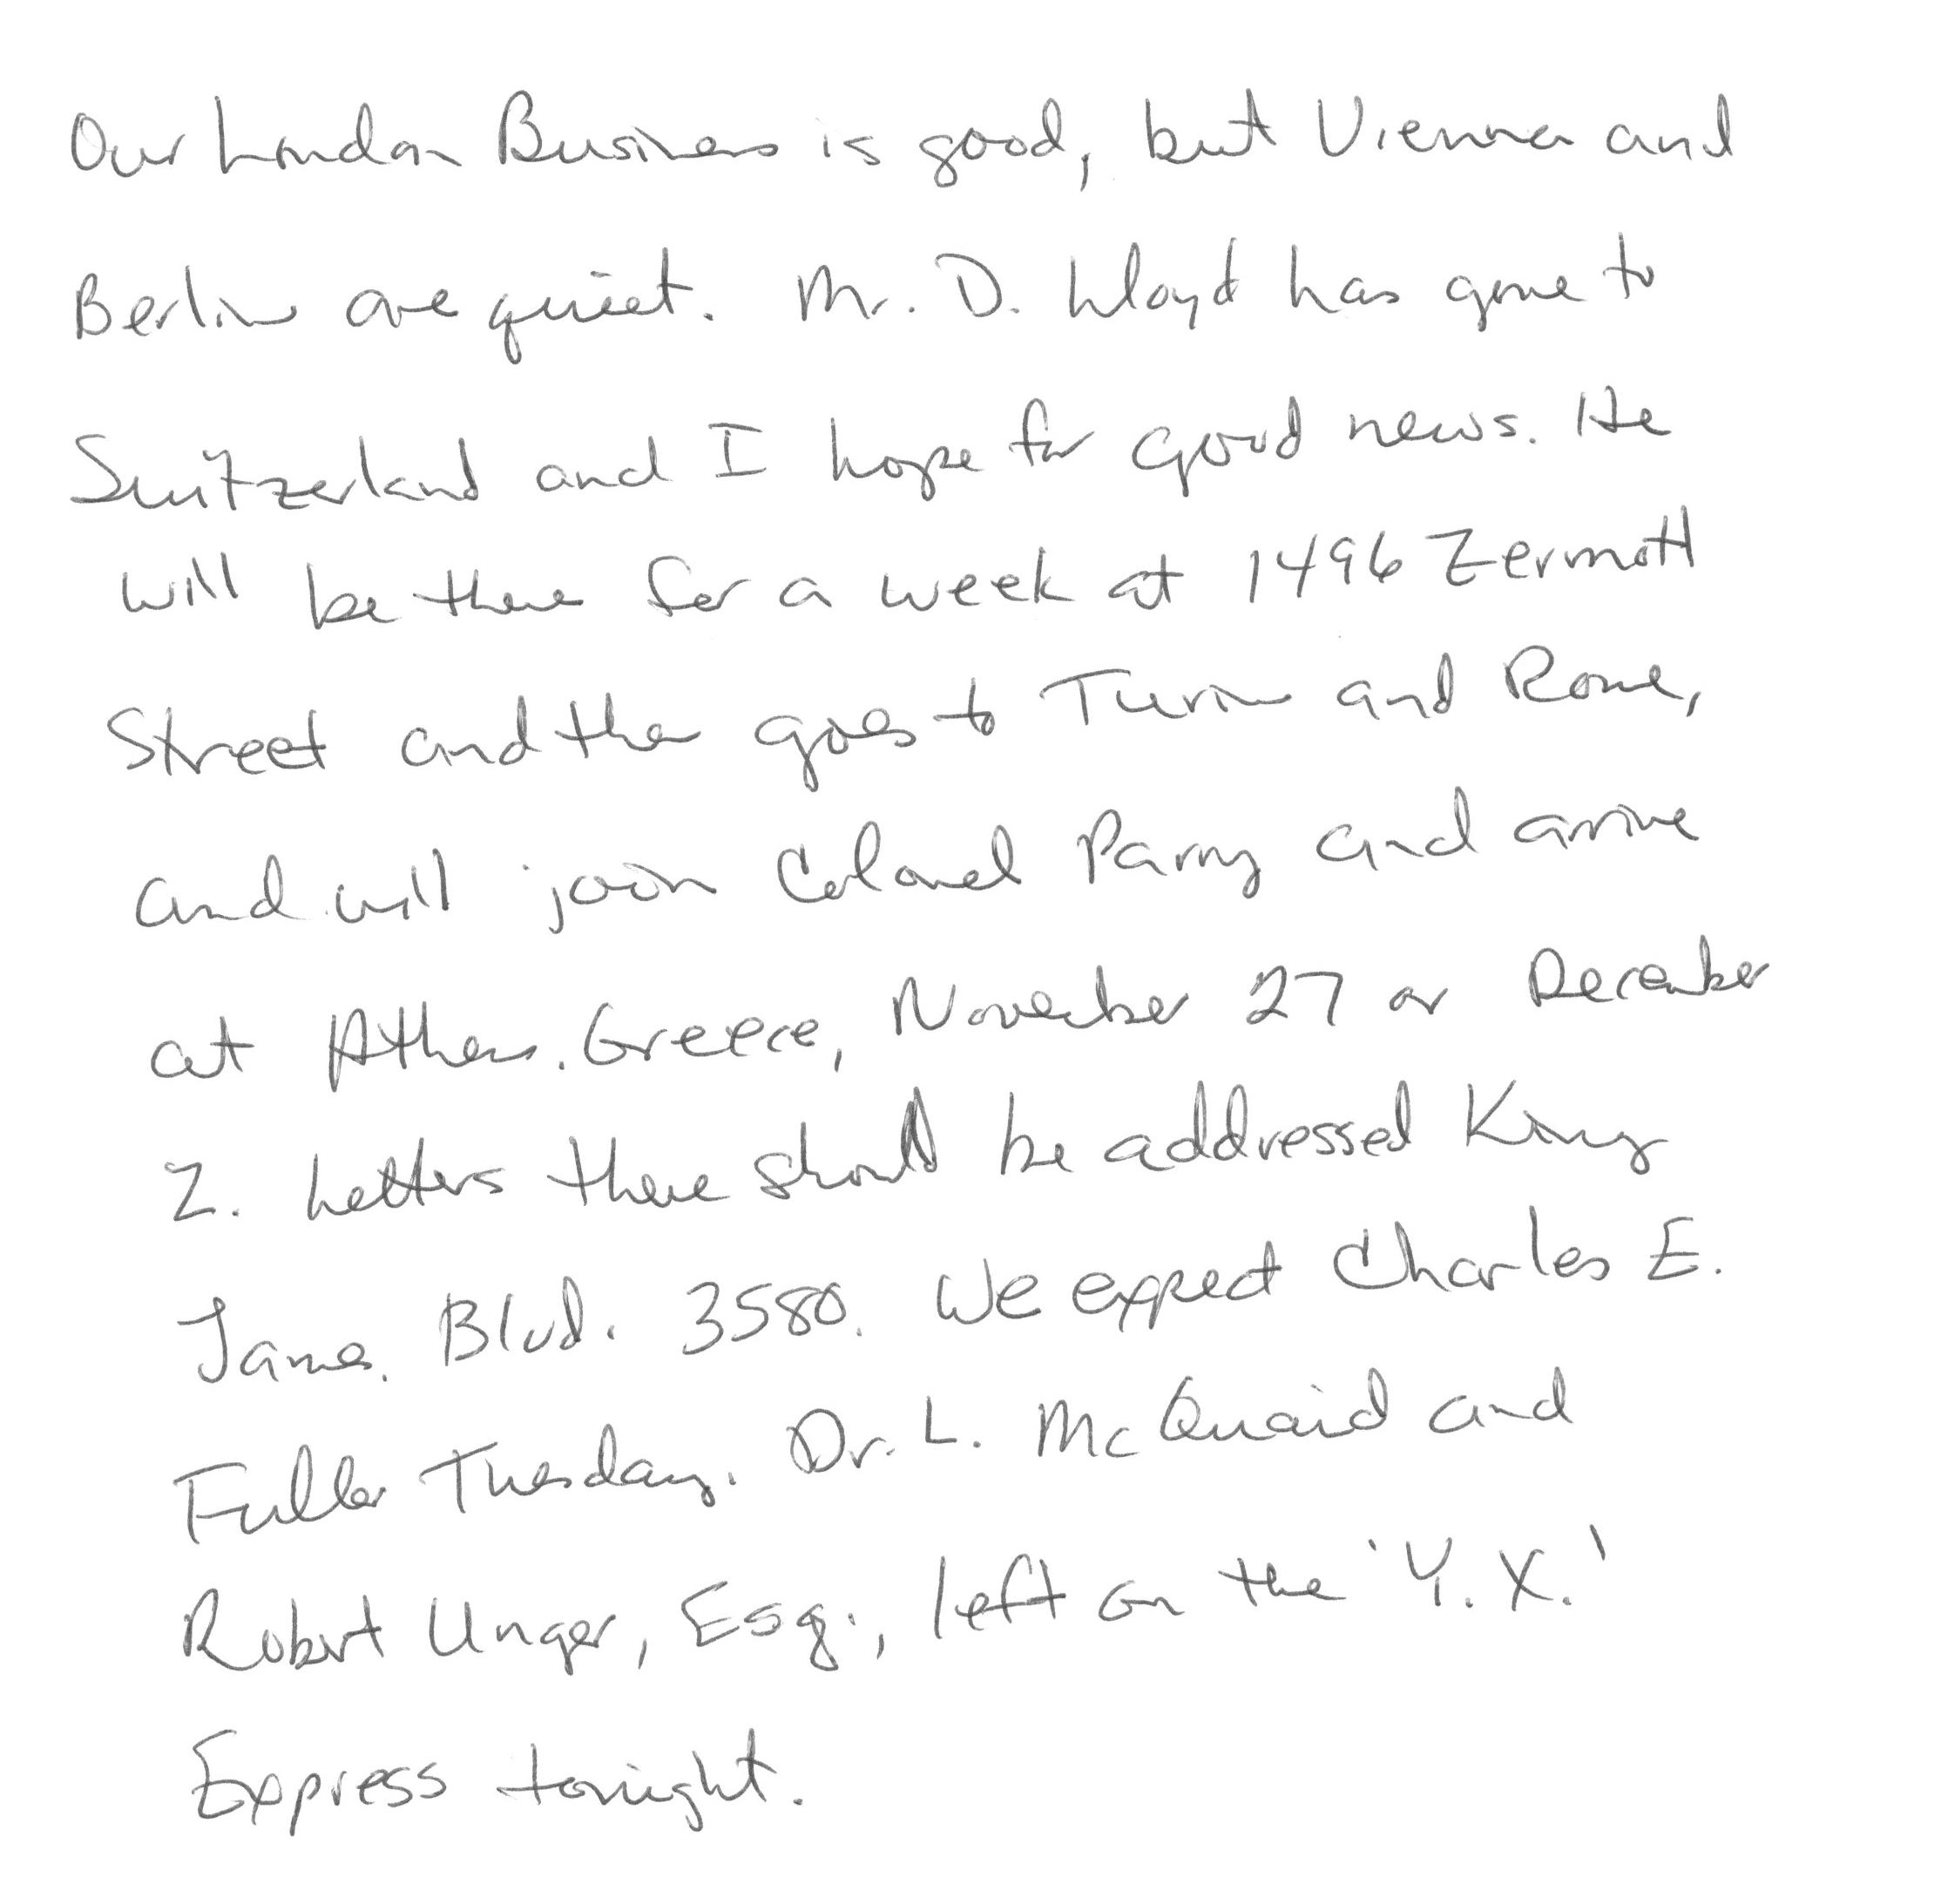 Our London Business is good, but Vienna and
Berlin are quiet. Mr. D. Lloyd has gone to
Switzerland and I hope for good news. He
will be there for a week at 1496 Zermott
Street and then goes to Turin and Rome,
and will join Colonel Parry and arrive
at Athens. Greece, November 27 or December
2. Letters there should be addressed King
James. Blvd. 3580. We expect Charles E.
Fuller Tuesday. Dr. L. McQuaid and
Robert Unger, Esq., left on the 'Y.X.'
Express tonight.